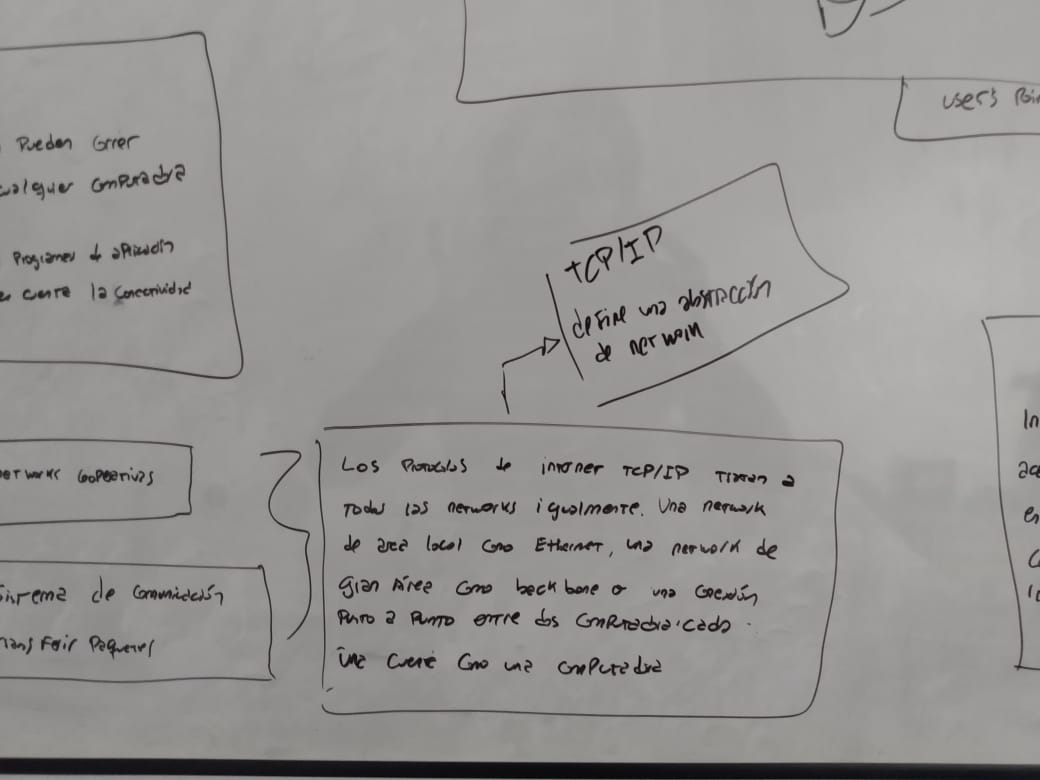 Pueden Correr
cualquier Computadora
Programas de aplicación
cuente la Conectividad
users Poin
TCP/IP
define una abstracción
de network
networks Cooperativas
Sistema de Comunicación
Transferir Paquetes
Los Protocolos de internet TCP/IP tratan a
todas las networks igualmente. Una network
de area local Como Ethernet, una network de
gran Área Como backbone o una Conexión
Punto a Punto entre dos Computadoras. Cada
una cuente Como una Computadora
In
en